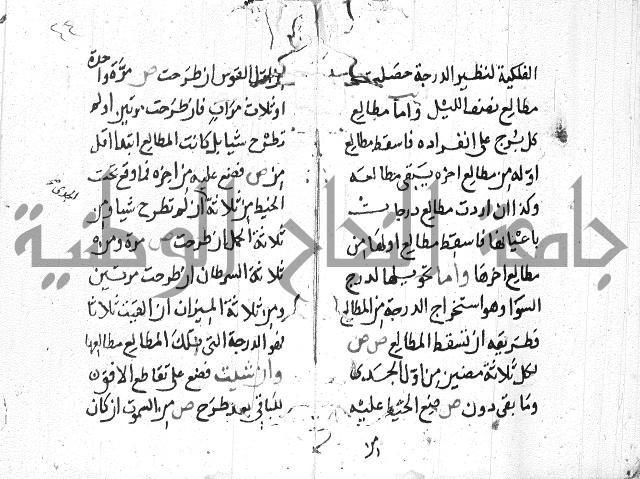 الفلكية لنظير الدرجة حصلت
مطالع نصف الليل واما مطالع
كل برج على انفراده فاسقط مطالع
اوله من مطالع اخره يبقى مطالعه
وكذا ان اردت مطالع درجات
باعيانها فاسقط مطالع اولها من
مطالع اخرها واما تحويلها لدرج
السوا وهو استخراج الدرجة من المطالع
فطريقه ان تسقط المطالع ص ص
لكل ثلاثة مضين من اول الجدى
وما بقى دون ص ضع الخيط عليه
من
القوس ان طرحت ص مرة واحدة
او ثلاث مرات فان طرحت مرتين او لم
تطرح شيا بل كانت المطالع ابتدا اقل
من ص فضع عليه من اخره فما وقع تحت
الخيط من ثلاثة ان لم تطرح شيا ومن
ثلاثة الحمل ان طرحت ص مرة ومن
ثلاثة السرطان ان طرحت مرتين
ومن ثلاثة الميزان ان القيت ثلاثا
فهو الدرجة التى تلك المطالع مطالعها
وان شيت فضع على تقاطع الافق
للباقى بعد طرح ص من السموت ان كان
الجدى
جامعة النجاح الوطنية